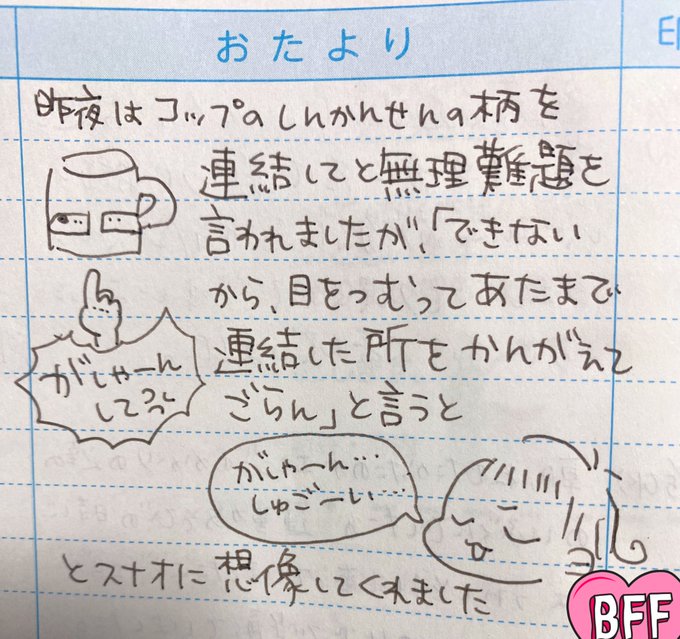 おたより
印
昨夜はコップのしんかんせんの柄を
連結してと無理難題を
言われましたが、「できない
から、目をつむってあたまで
連結した所をかんがえて
ごらん」と言うと
がしゃーん
してっっ
がしゃーん…
しゅごーい…
とスナオに想像してくれました
BFF